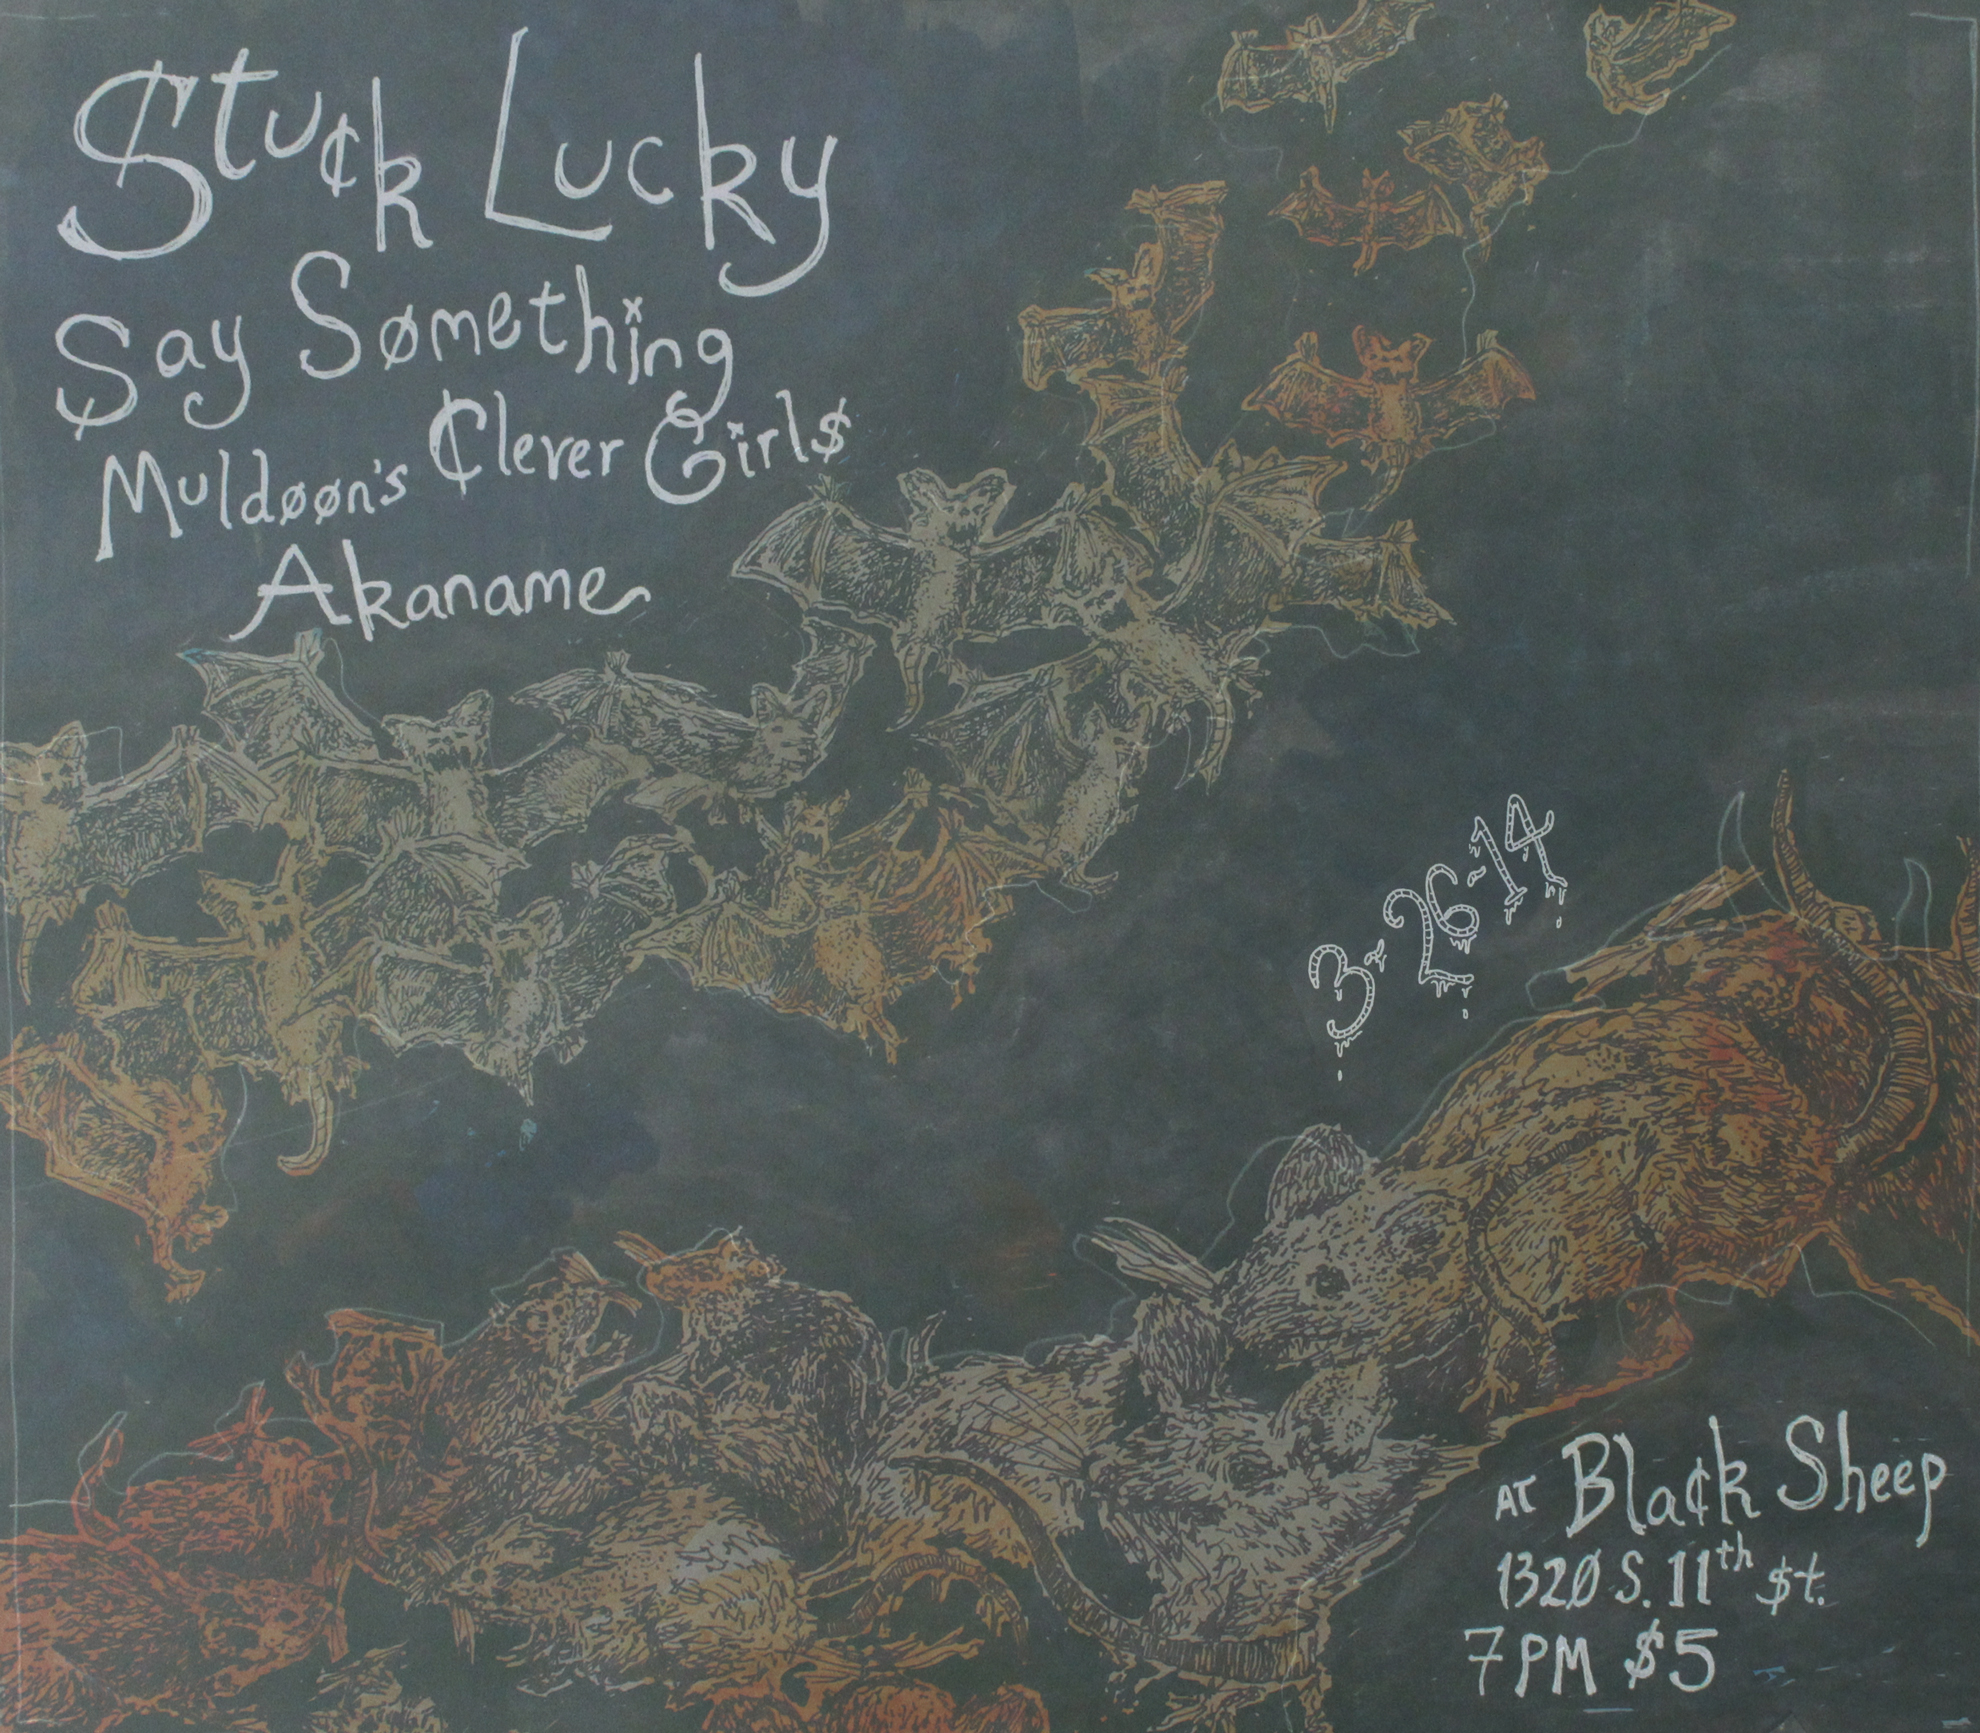 Stuck Lucky
Say Something
Muldoon's Clever Girls
Akaname
3-26-14
AT Black Sheep
1320 S. 11th St.
7PM $5